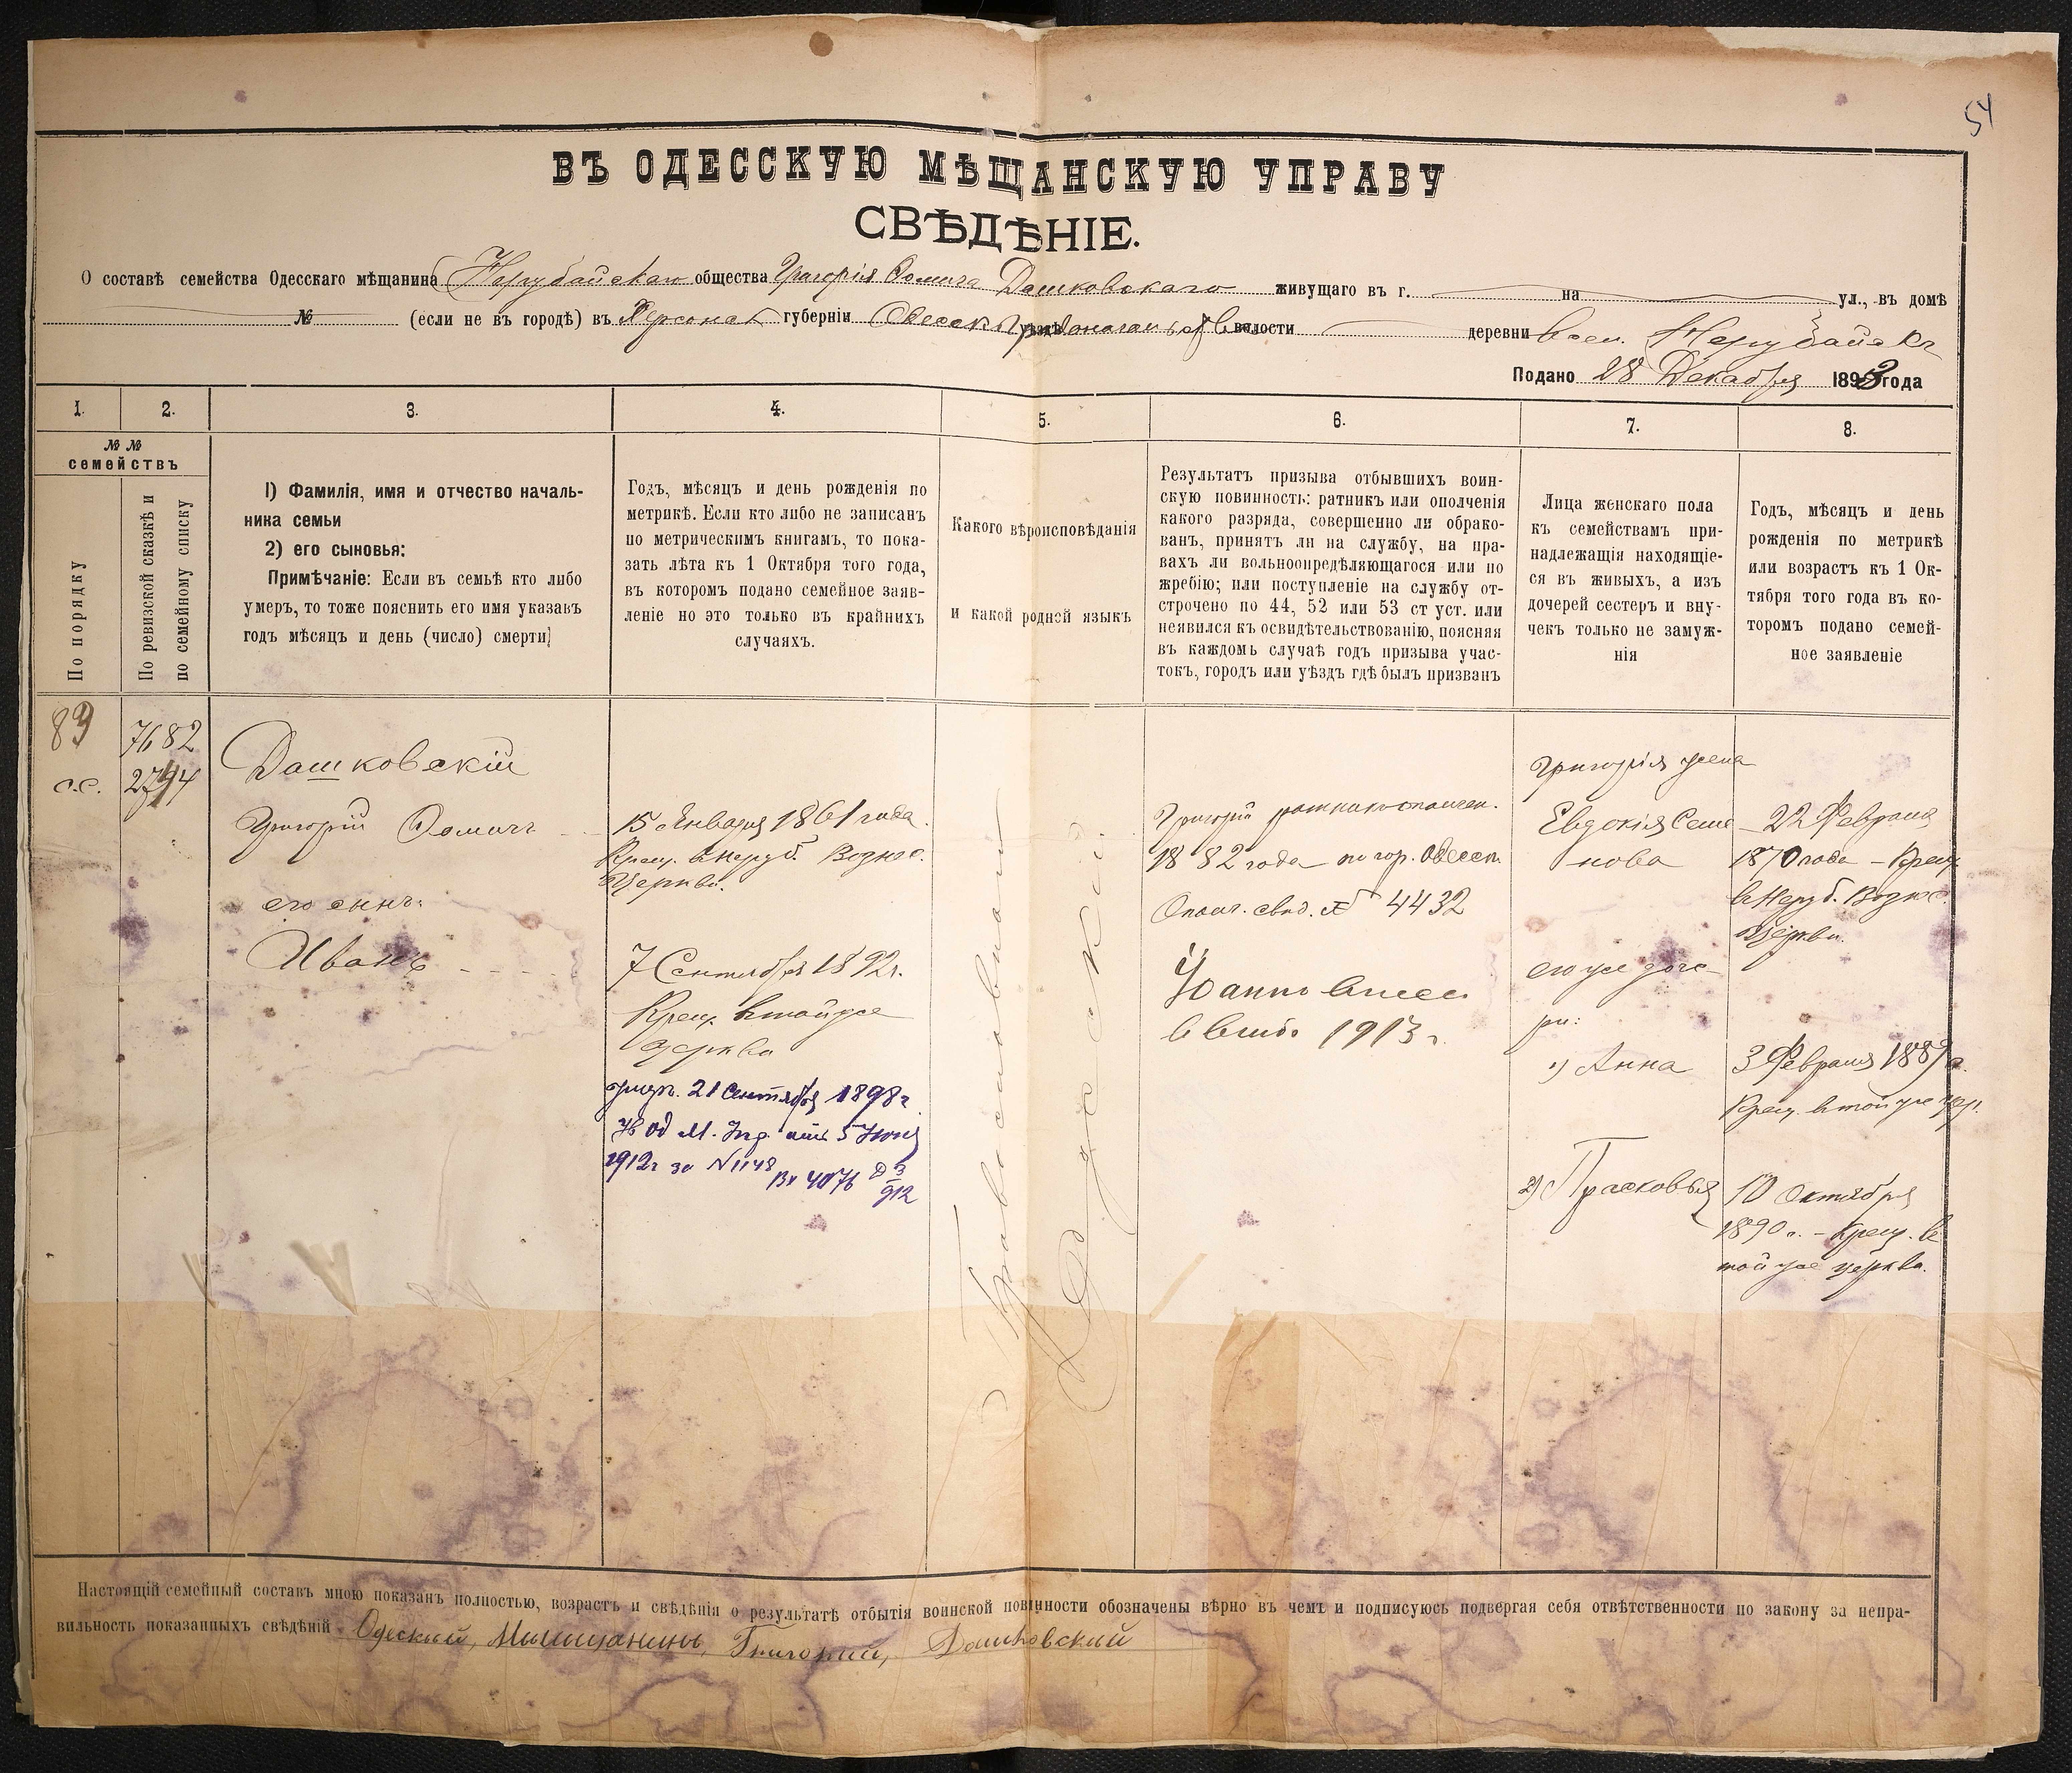 54
ВЪ ОДЕССКУЮ МѢЩАНСКУЮ УПРАВУ
СВѢДѢНІЕ.
О составѣ семейства Одесскаго мѣщанина Нерубайскаго общества Григорія Ѳомича Дашковскаго живущаго въ г. на ул., въ домѣ
№ (если не въ городѣ) въ Херсонск губерніи Одесск уѣздѣ волости деревни в сел. Нерубайскѣ
Подано 28 Декабря 1893 года
1. 2. 3. 4. 5. 6. 7. 8.
№ №
семействъ
По порядку
По ревизской сказкѣ и
по семейному списку
1) Фамилія, имя и отчество началь-
ника семьи
2) его сыновья:
Примѣчаніе: Если въ семьѣ кто либо
умеръ, то тоже пояснить его имя указавъ
годъ мѣсяцъ и день (число) смерти
Годъ, мѣсяцъ и день рожденія по
метрикѣ. Если кто либо не записанъ
по метрическимъ книгамъ, то пока-
зать лѣта къ 1 Октября того года,
въ которомъ подано семейное заяв-
леніе но это только въ крайнихъ
случаяхъ.
Какого вѣроисповѣданія
и какой родной языкъ
Результатъ призыва отбывшихъ воин-
скую повинность: ратникъ или ополченія
какого разряда, совершенно ли обрако-
ванъ, принятъ ли на службу, на пра-
вахъ ли вольноопредѣляющагося или по
жребію; или поступленіе на службу от-
строчено по 44, 52 или 53 ст уст. или
неявился къ освидѣтельствованію, поясняя
въ каждомъ случаѣ годъ призыва учас-
токъ, городъ или уѣздъ гдѣ былъ призванъ
Лица женскаго пола
къ семействамъ при-
надлежащія находящіе-
ся въ живыхъ, а изъ
дочерей сестеръ и вну-
чекъ только не замуж-
нія
Годъ, мѣсяцъ и день
рожденія по метрикѣ
или возрастъ къ 1 Ок-
тября того года въ ко-
торомъ подано семей-
ное заявленіе
83
с.с.
7682
2794
Дашковскій
Григорій Ѳомичъ
его сынъ:
Иванъ
15 Января 1861 года.
Крещ. в Неруб. Вознес.
Церкви.
7 Сентября 1892 г.
Крещ. в той же
церкви
умеръ. 21 Сентября 1898 г
Од М. отъ 5 Іюня
1912 г за N 1148 Вх 4076
912
Православный
Русскій.
Григорій ратник ополчен.
1882 года по гор. Одесск.
Ополч. свид. № 4432
Іоаннъ внесен
в 1913 г.
Григорія жена
Евдокія Семе
нова
его же доче-
ри:
1) Анна
2) Прасковья
22 Февраля
1870 года - Крещ.
в Неруб. Вознес.
Церкви.
3 Февраля 1889 г.
Крещ. в той же цер.
10 Октября
1890 г. - Крещ. в
той же церкви.
Настоящій семейный составъ мною показанъ полностью, возрастъ и свѣдѣнія о результатѣ отбытія воинской повинности обозначены вѣрно въ чемъ и подписуюсь подвергая себя отвѣтственности по закону за непра-
вильность показанныхъ свѣдѣній Одескый, Мыщианинъ, Григорий, Дашковский